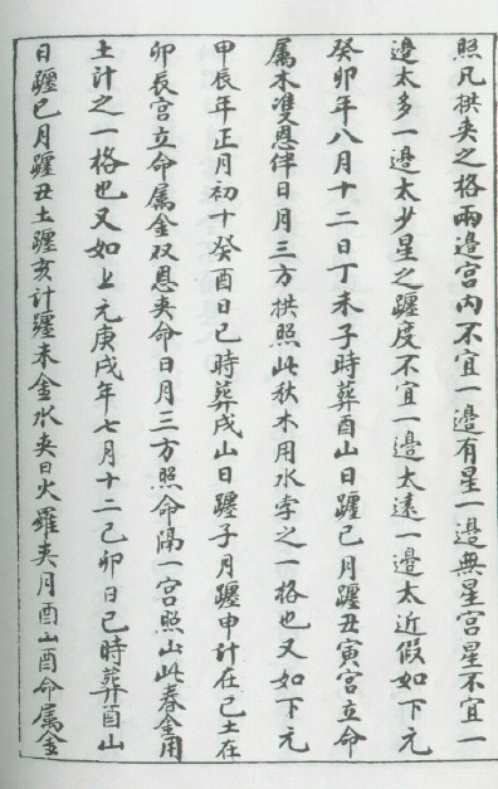 照凡拱夹之格兩邉宮内不宜一邉有星一邉無星宮星不宜一
邉太多一邉太少星之躔度不宜一邉太遠一邉太近假如下元
癸卯年八月十二日丁未子時葬酉山日躔巳月躔丑寅宮立命
屬木雙恩伴日月三方拱照此秋木用水孛之一格也又如下元
甲辰年正月初十癸酉日巳時葬戌山日躔子月躔申計在巳土在
卯辰宮立命屬金双恩夹命日月三方照命隔一宮照山此春金用
土計之一格也又如上元庚戌年七月十二己卯日巳時葬酉山
日躔巳月躔丑土躔亥計躔未金水夹日火羅夹月酉山酉命屬金